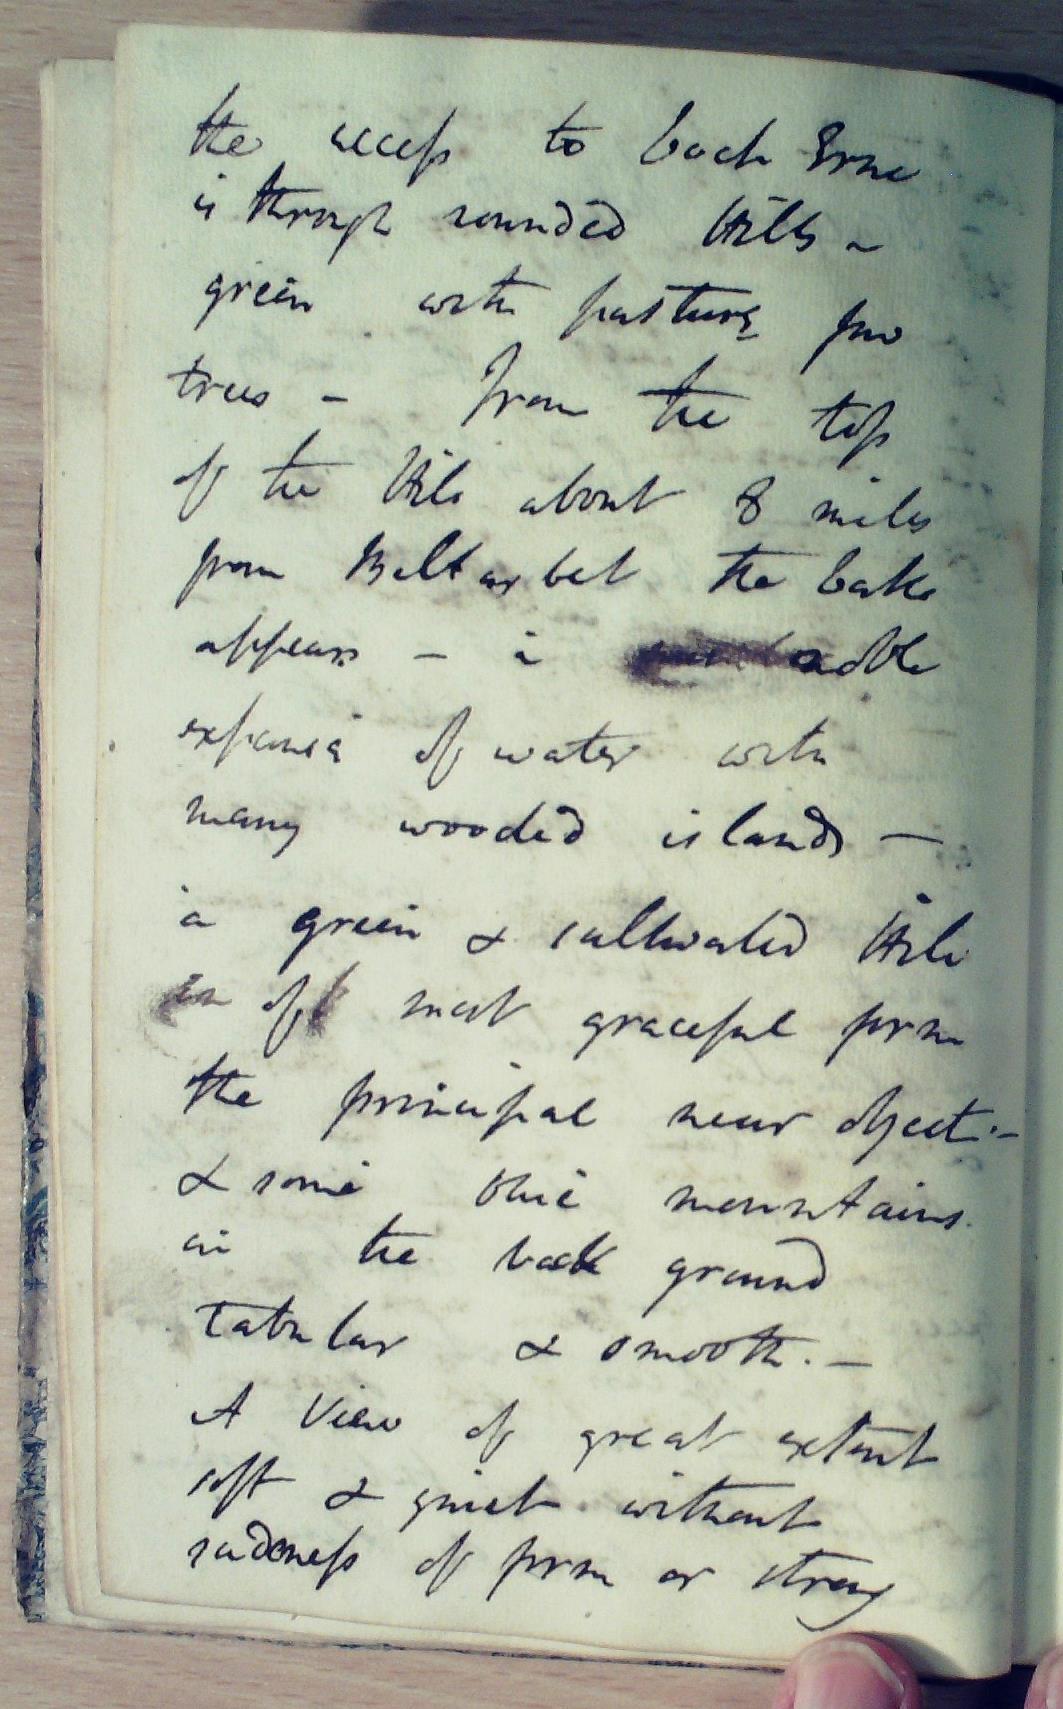 the access to Loch Erne
is through rounded Hills -
green with pasture few
trees - From the top
of the Hill about 8 miles
from Belturbet the Lake
appears - a noble
expanse of water with
many wooded islands -
a green & cultivated Hill
of most graceful form
the principal near object. -
& some blue mountains
in the back ground
tabular & smooth. -
A View of great extent
soft & quiet without
of form or strong